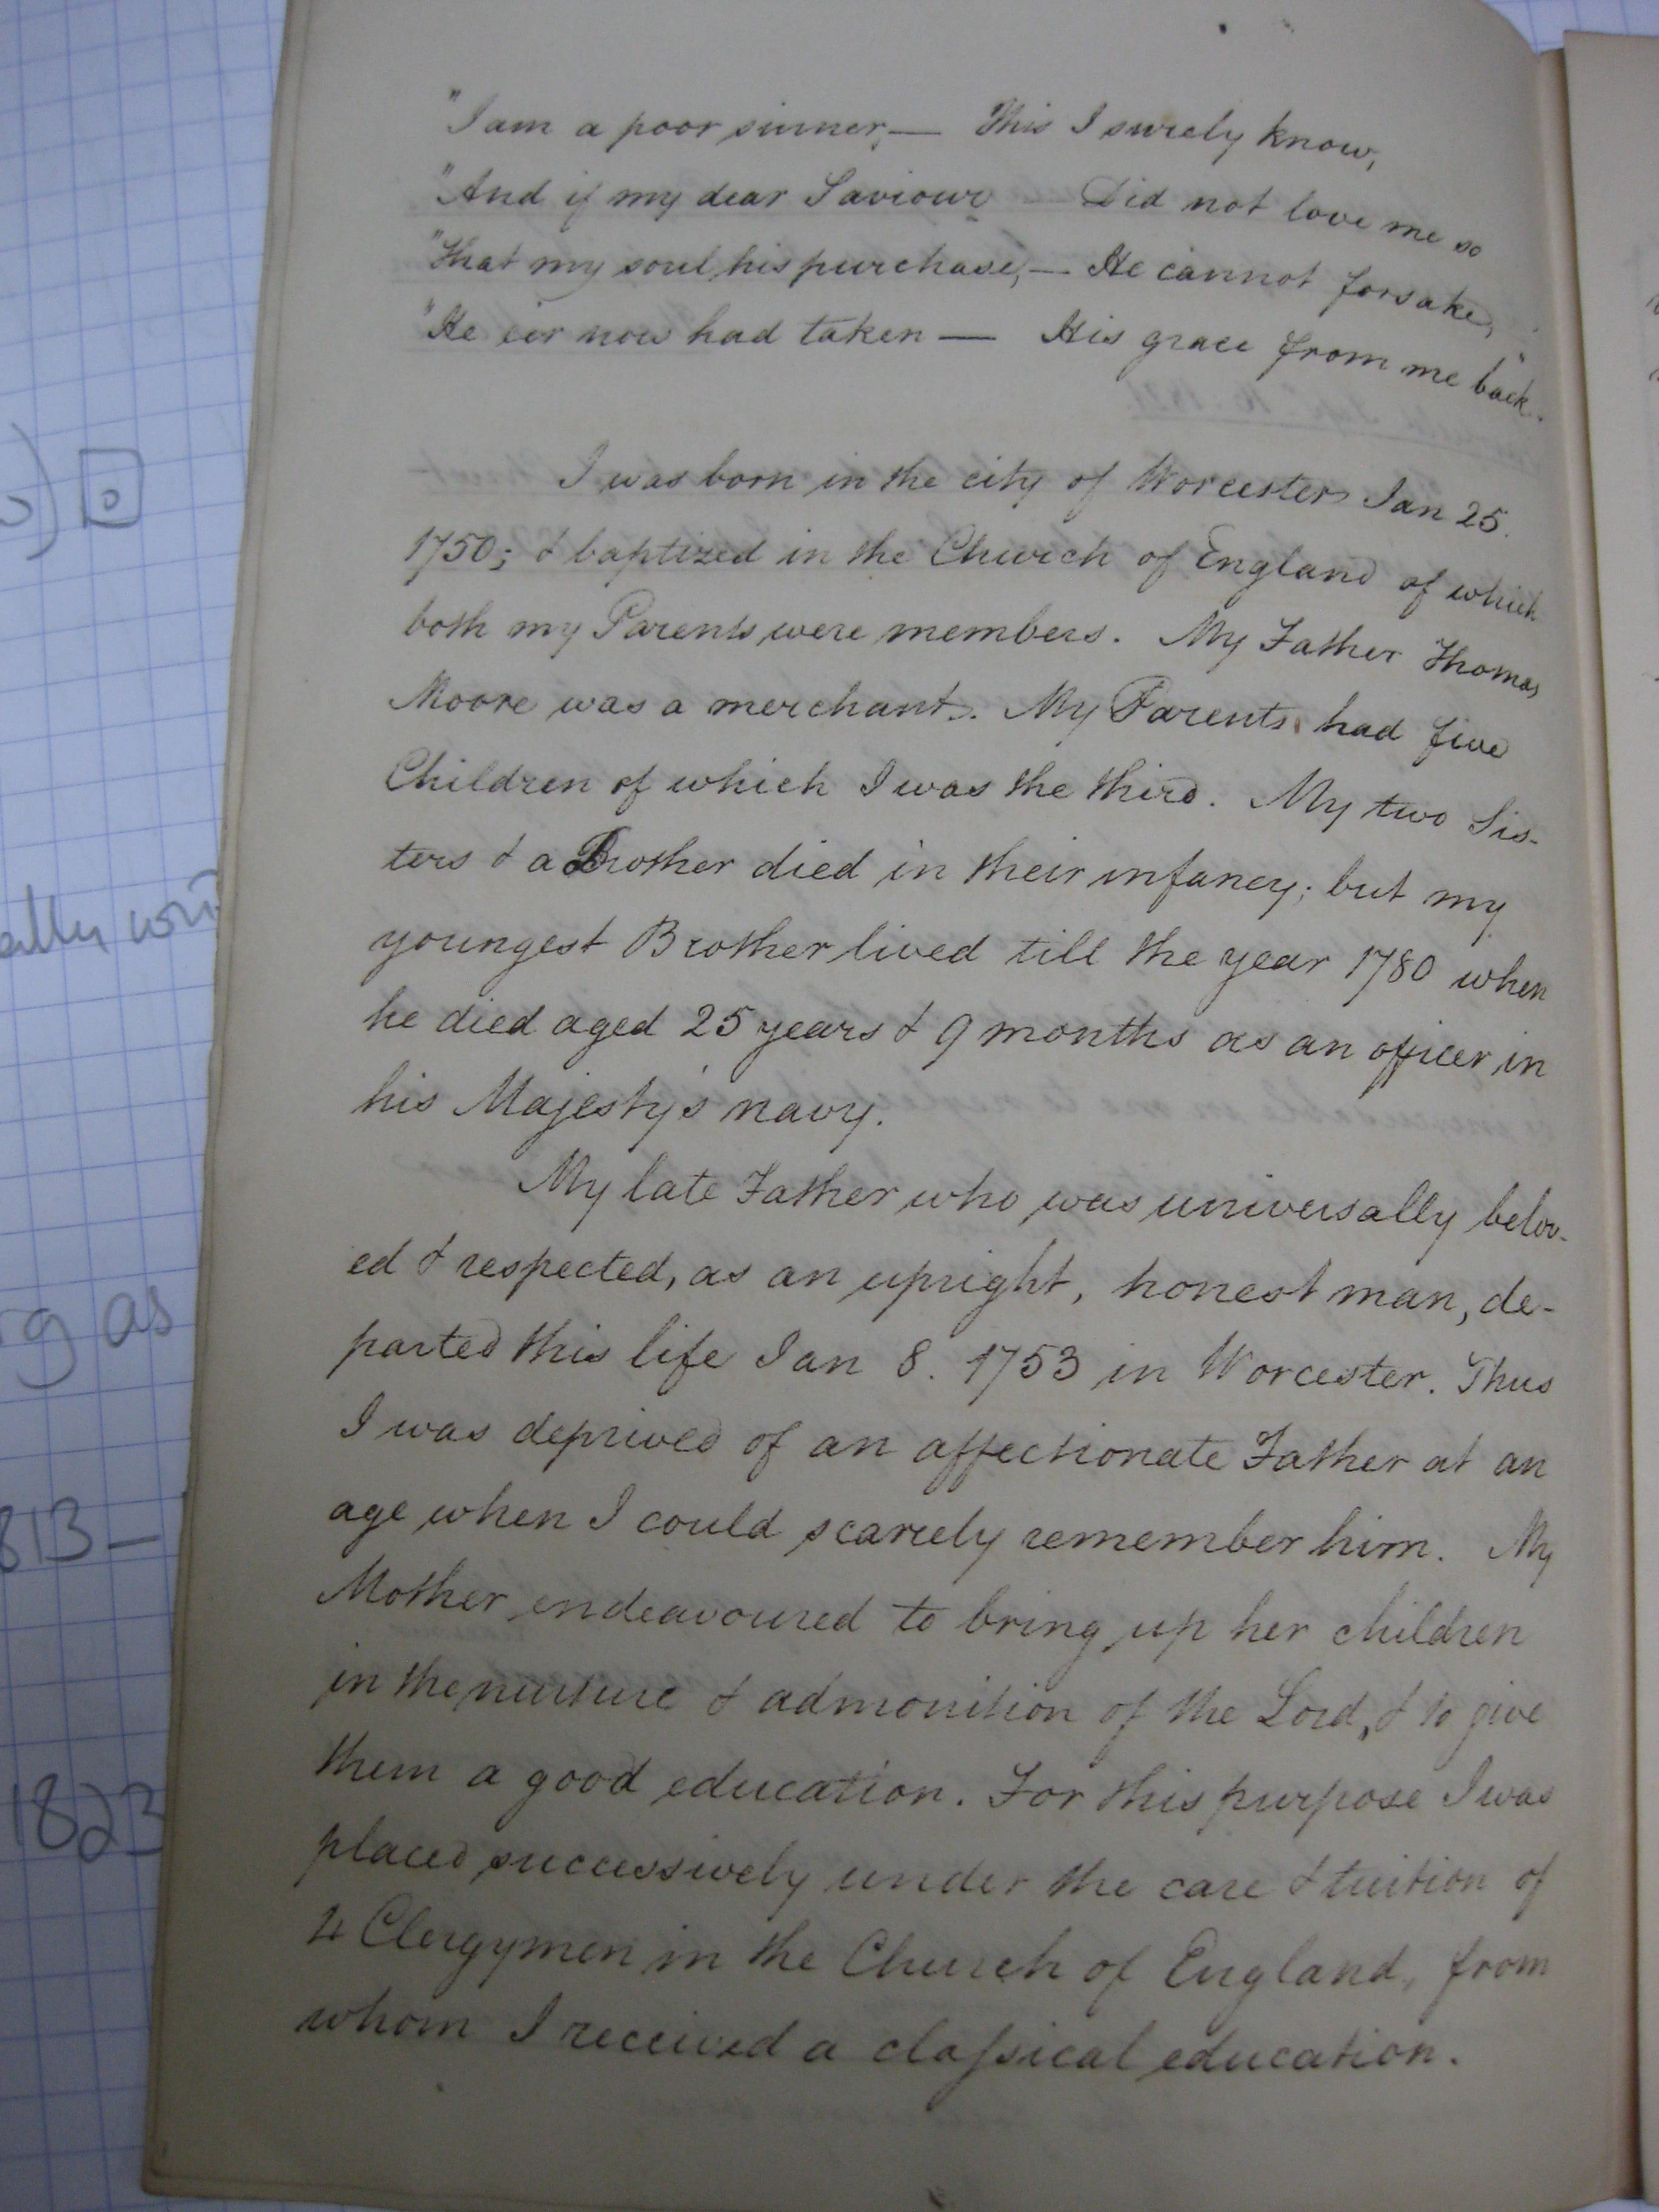 "I am a poor sinner,— This I surely know,
"And if my dear Saviour — Did not love me so
"That my soul, his purchase,— He cannot forsake,
"He e'er now had taken — His grace from me back."
I was born in the city of Worcester Jan 25.
1750; & baptized in the Church of England of which
both my Parents were members. My Father Thomas
Moore was a merchant. My Parents had five
Children of which I was the third. My two Sis-
ters & a Brother died in their infancy; but my
youngest Brother lived till the year 1780 when
he died aged 25 years & 9 months as an officer in
his Majesty's navy.
My late Father who was universally belov-
ed & respected, as an upright, honest man, de-
parted this life Jan 8. 1753 in Worcester. Thus
I was deprived of an affectionate Father at an
age when I could scarcely remember him. My
Mother endeavoured to bring up her children
in the nurture & admonition of the Lord, & to give
them a good education. For this purpose I was
placed successively under the care & tuition of
4 Clergymen in the Church of England, from
whom I received a classical education.
g as
813—
1823